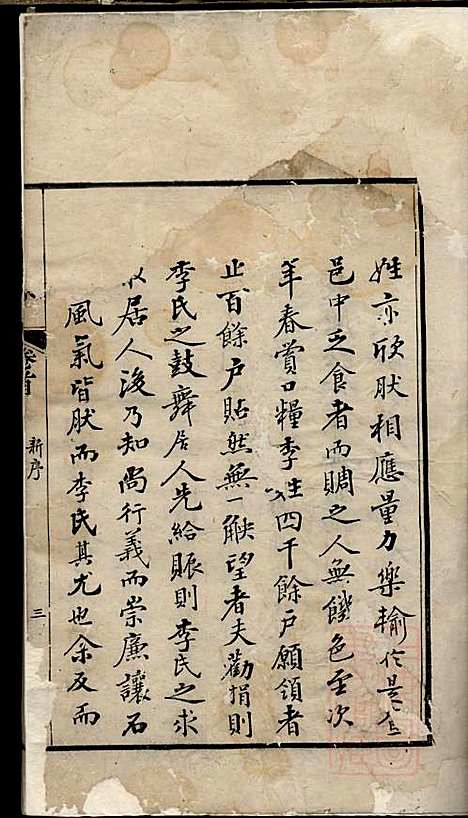 姓亦欣肰相應量力樂輸於是合
邑中乏食者而賙之人無饑色至次
年春賞口糧李姓四千餘戶願領者
止百餘戶貼然無一觖望者夫勸捐則
李氏之鼓舞居人先給賑則李氏之求
以居人後乃知尚行義而崇廉讓石
風氣皆肰而李氏其尤也余及而
卷首
新序
三